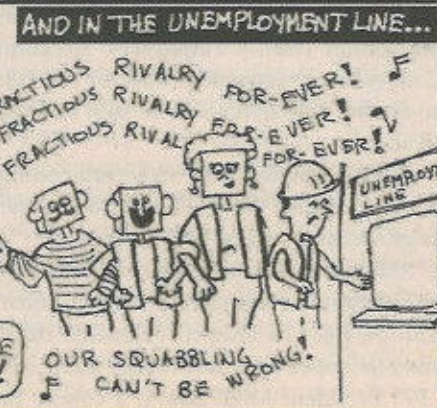 AND IN THE UNEMPLOYMENT LINE...
RACTIOUS RIVALRY FOR-EVER!
FRACTIOUS RIVALRY FOR-EVER!
FRACTIOUS RIVAL FOR-EVER!
UNEMPLOY
LINE
OUR SQUABBLING
CAN'T BE WRONG!